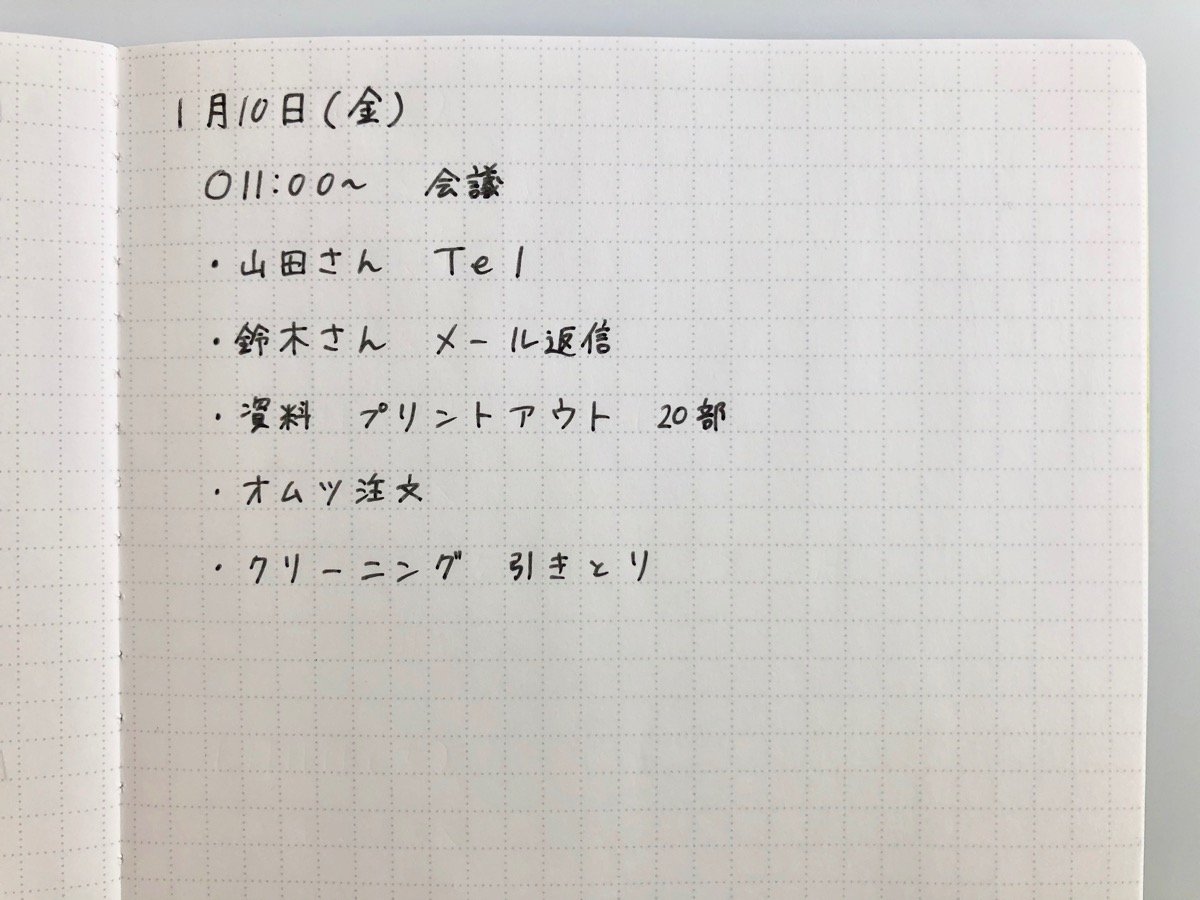 1月10日(金)
○11:00~ 会議
・山田さん Tel
・鈴木さん メール返信
・資料 プリントアウト 20部
・オムツ注文
・クリーニング 引きとり